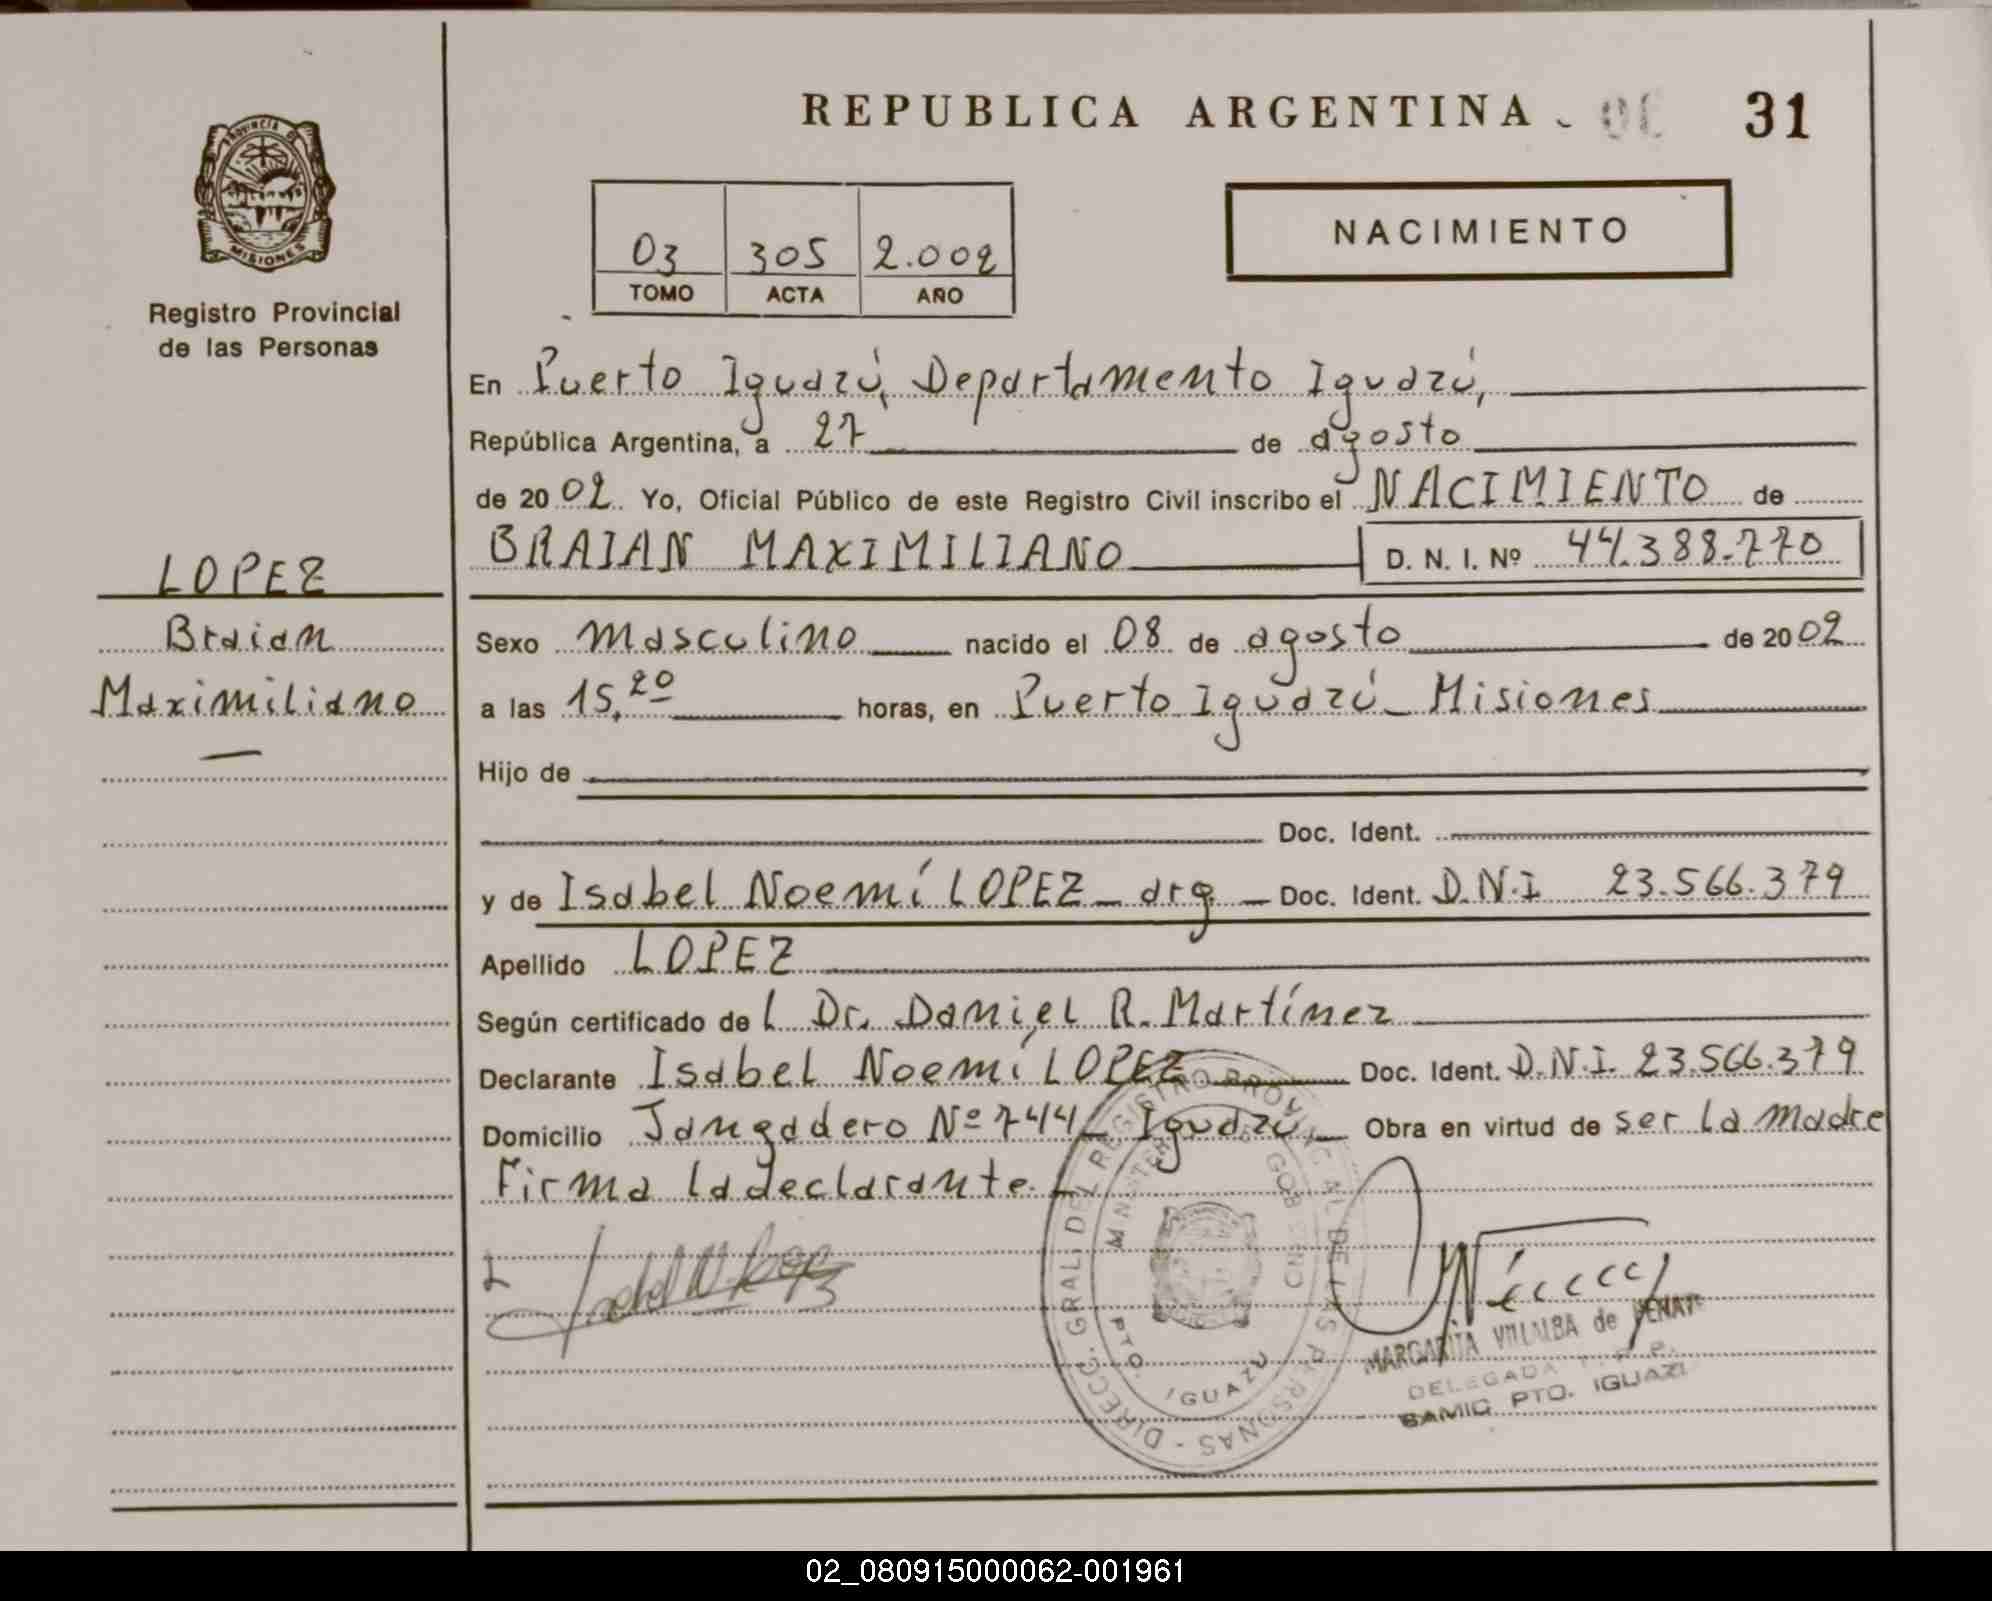 REPUBLICA ARGENTINA 31
PROVINCIA DE
MISIONES
Registro Provincial
de las Personas
03 305 2.002
TOMO ACTA AÑO
NACIMIENTO
En Puerto Iguazú, Departamento Iguazú,
República Argentina, a 27 de agosto
de 2002 Yo, Oficial Público de este Registro Civil inscribo el NACIMIENTO de
BRAIAN MAXIMILIANO D. N. I. Nº 44.388.770
LOPEZ
Braian
Maximiliano
Sexo masculino nacido el 08 de agosto de 2002
a las 15,20 horas, en Puerto Iguazú - Misiones
Hijo de
Doc. Ident.
y de Isabel Noemí LOPEZ - arg - Doc. Ident. D.N.I 23.566.379
Apellido LOPEZ
Según certificado del Dr. Daniel R. Martínez
Declarante Isabel Noemí LOPEZ Doc. Ident. D.N.I. 23.566.379
Domicilio Jangadero Nº 744 - Iguazú - Obra en virtud de ser la madre
Firma la declarante.
DIRECC. GRAL. DEL REGISTRO PROVINCIAL DE LAS PERSONAS -
MINISTERIO DE GOBIERNO
PTO. IGUAZU
MARGARITA VILLALBA de
DELEGADA
SAMIC PTO. IGUAZU
02_080915000062-001961